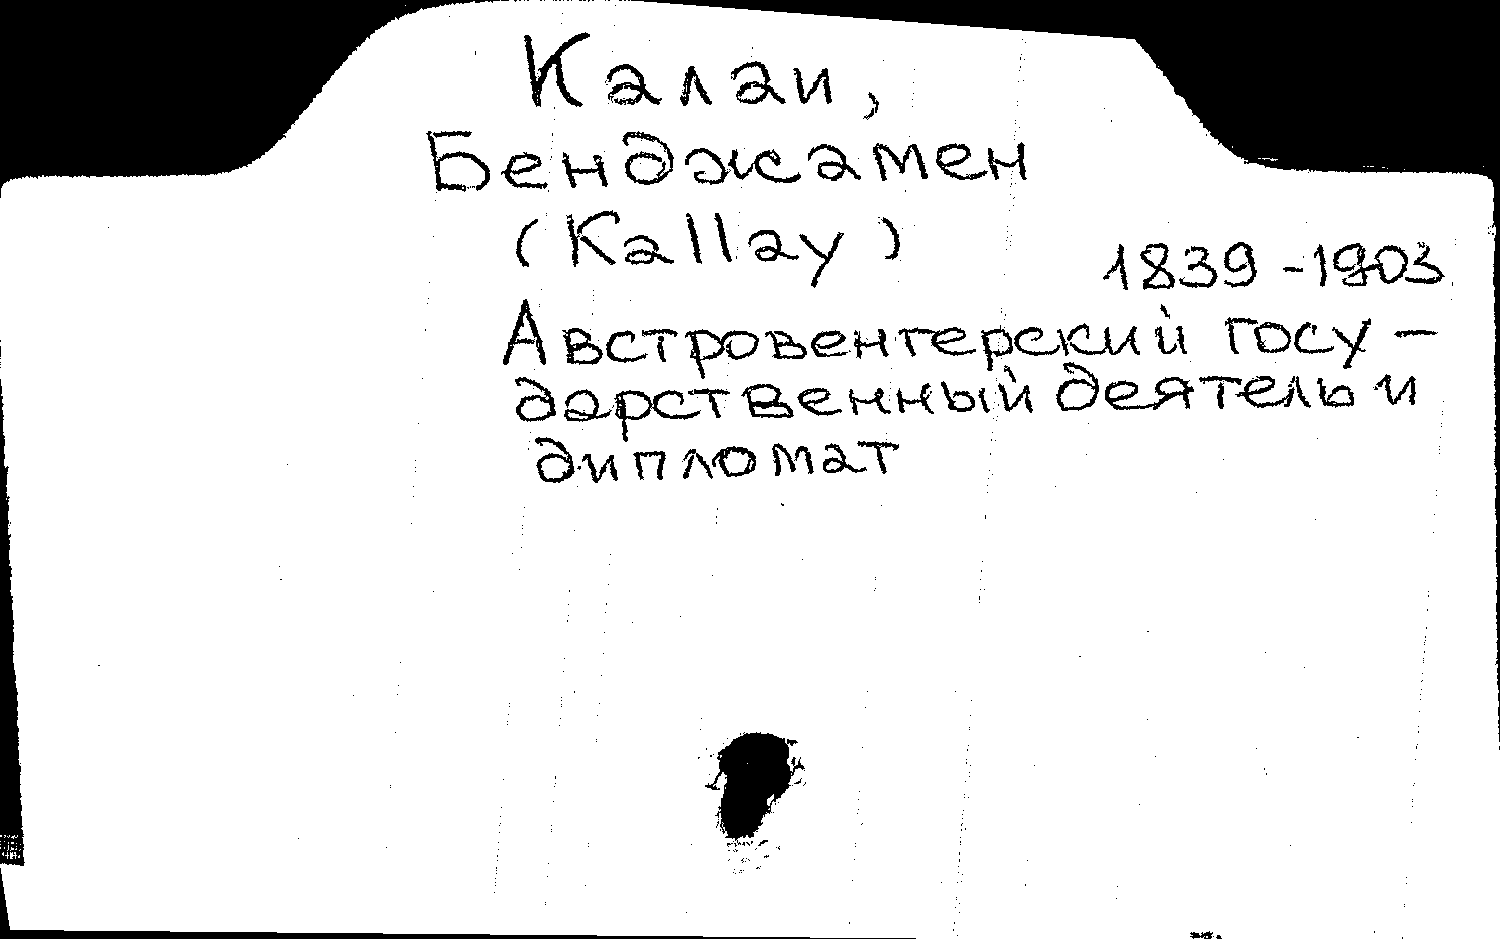 Калаи,
Бенджамен
(Kallay)
1839-1903
Австровенгерский госу-
дарственный деятель и
дипломат